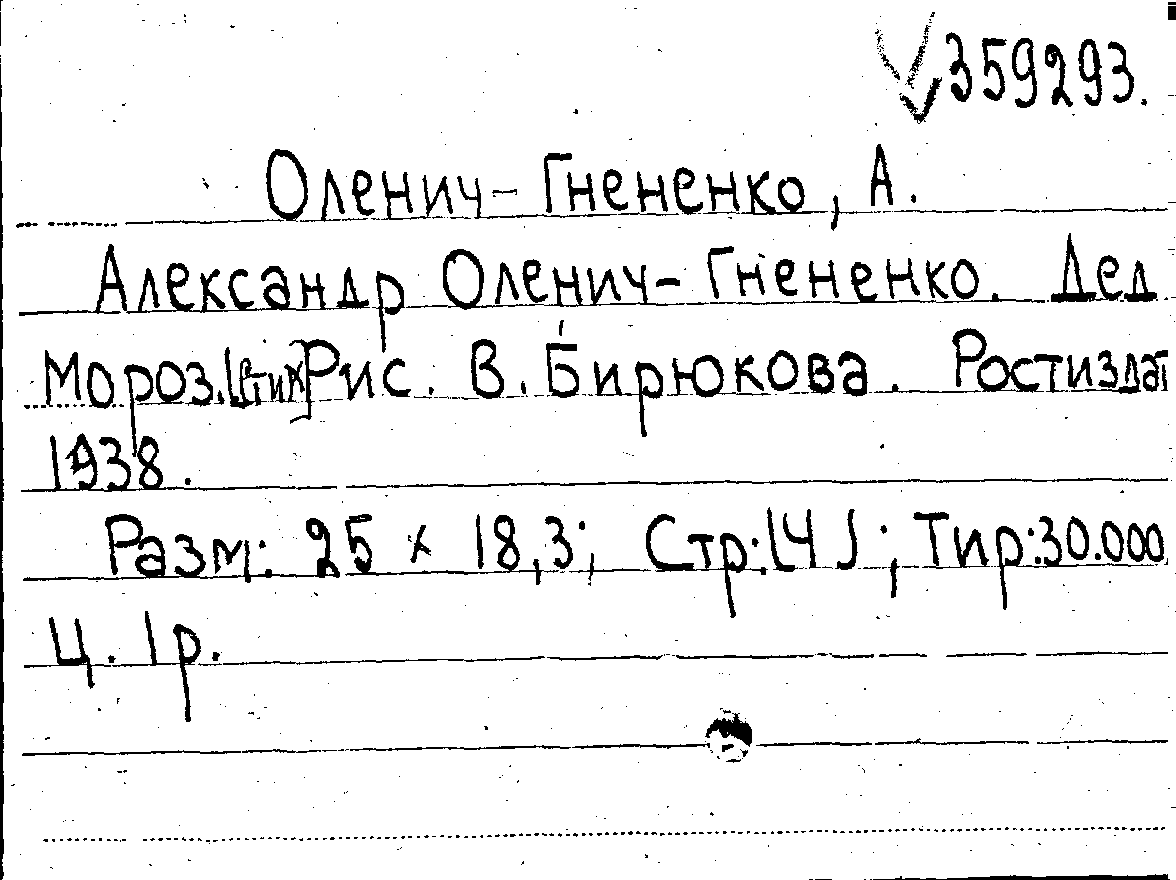 359293.
Оленич-Гнененко, А.
Александр Оленич-Гнененко. Дед
Мороз. [Стих] Рис. В. Бирюкова. Ростиздат
1938.
Разм: 25 x 18,3; Стр: [4]; Тир: 30.000
Ц. 1р.